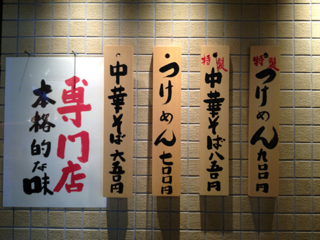 特製
つけめん九〇〇円
特製
中華そば八五〇円
つけめん七〇〇円
中華そば六五〇円
専門店
本格的な味